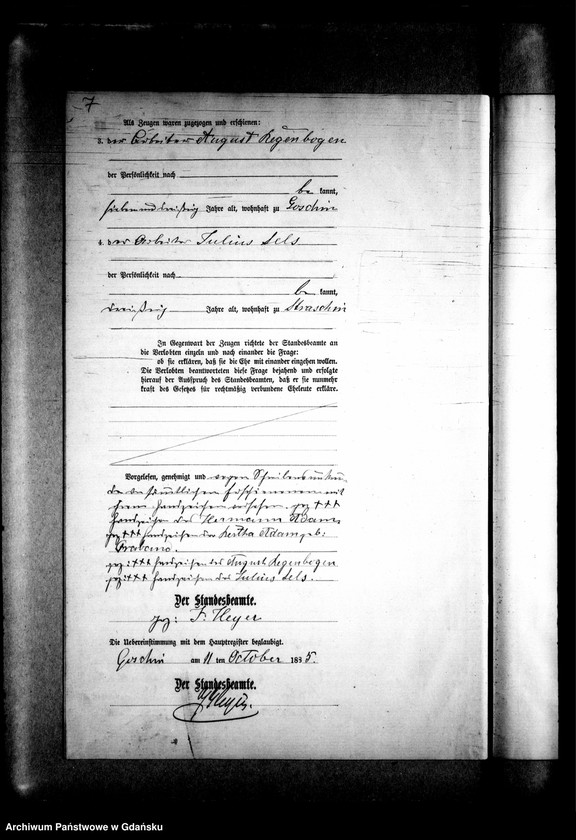 7
Als Zeugen waren zugezogen und erschienen:
3. der Arbeiter August Regenbogen
der Persönlichkeit nach
be kannt,
siebenunddreißig Jahre alt, wohnhaft zu Goschin
4. der Arbeiter Julius Sels
der Persönlichkeit nach
be kannt,
dreißig Jahre alt, wohnhaft zu Straschin
In Gegenwart der Zeugen richtete der Standesbeamte an
die Verlobten einzeln und nach einander die Frage:
ob sie erklären, daß sie die Ehe mit einander eingehen wollen.
Die Verlobten beantworteten diese Frage bejahend und erfolgte
hierauf der Ausspruch des Standesbeamten, daß er sie nunmehr
kraft des Gesetzes für rechtmäßig verbundene Eheleute erkläre.
Vorgelesen, genehmigt und wegen Schreibensunkun
de von sämmtlichen Erschienenen mit
ihrem Handzeichen versehen. gez +++
Handzeichen des Hermann Adam,
gez +++ Handzeichen der Bertha Adam geb:
gez: +++ Handzeichen des August Regenbogen
gez: +++ Handzeichen des Julius Sels.
Der Standesbeamte.
gez: F. Heyer
Die Uebereinstimmung mit dem Hauptregister beglaubigt.
Goschin am 11 ten October 1885.
Der Standesbeamte.
Heyer.
Archiwum Państwowe w Gdańsku